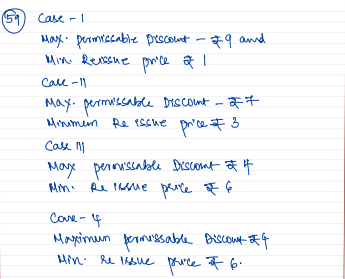 59 Case - I
Max. permissable Discount - ₹ 9 and
Min. Reissue price ₹ 1
Case - II
Max. permissable Discount - ₹ 7
Minimum Re issue price ₹ 3
Case III
Max permissable Discount ₹ 4
Min. Re issue price ₹ 6
Case - 4
Maximum permissable Discount ₹ 4
Min. Re issue price ₹ 6.